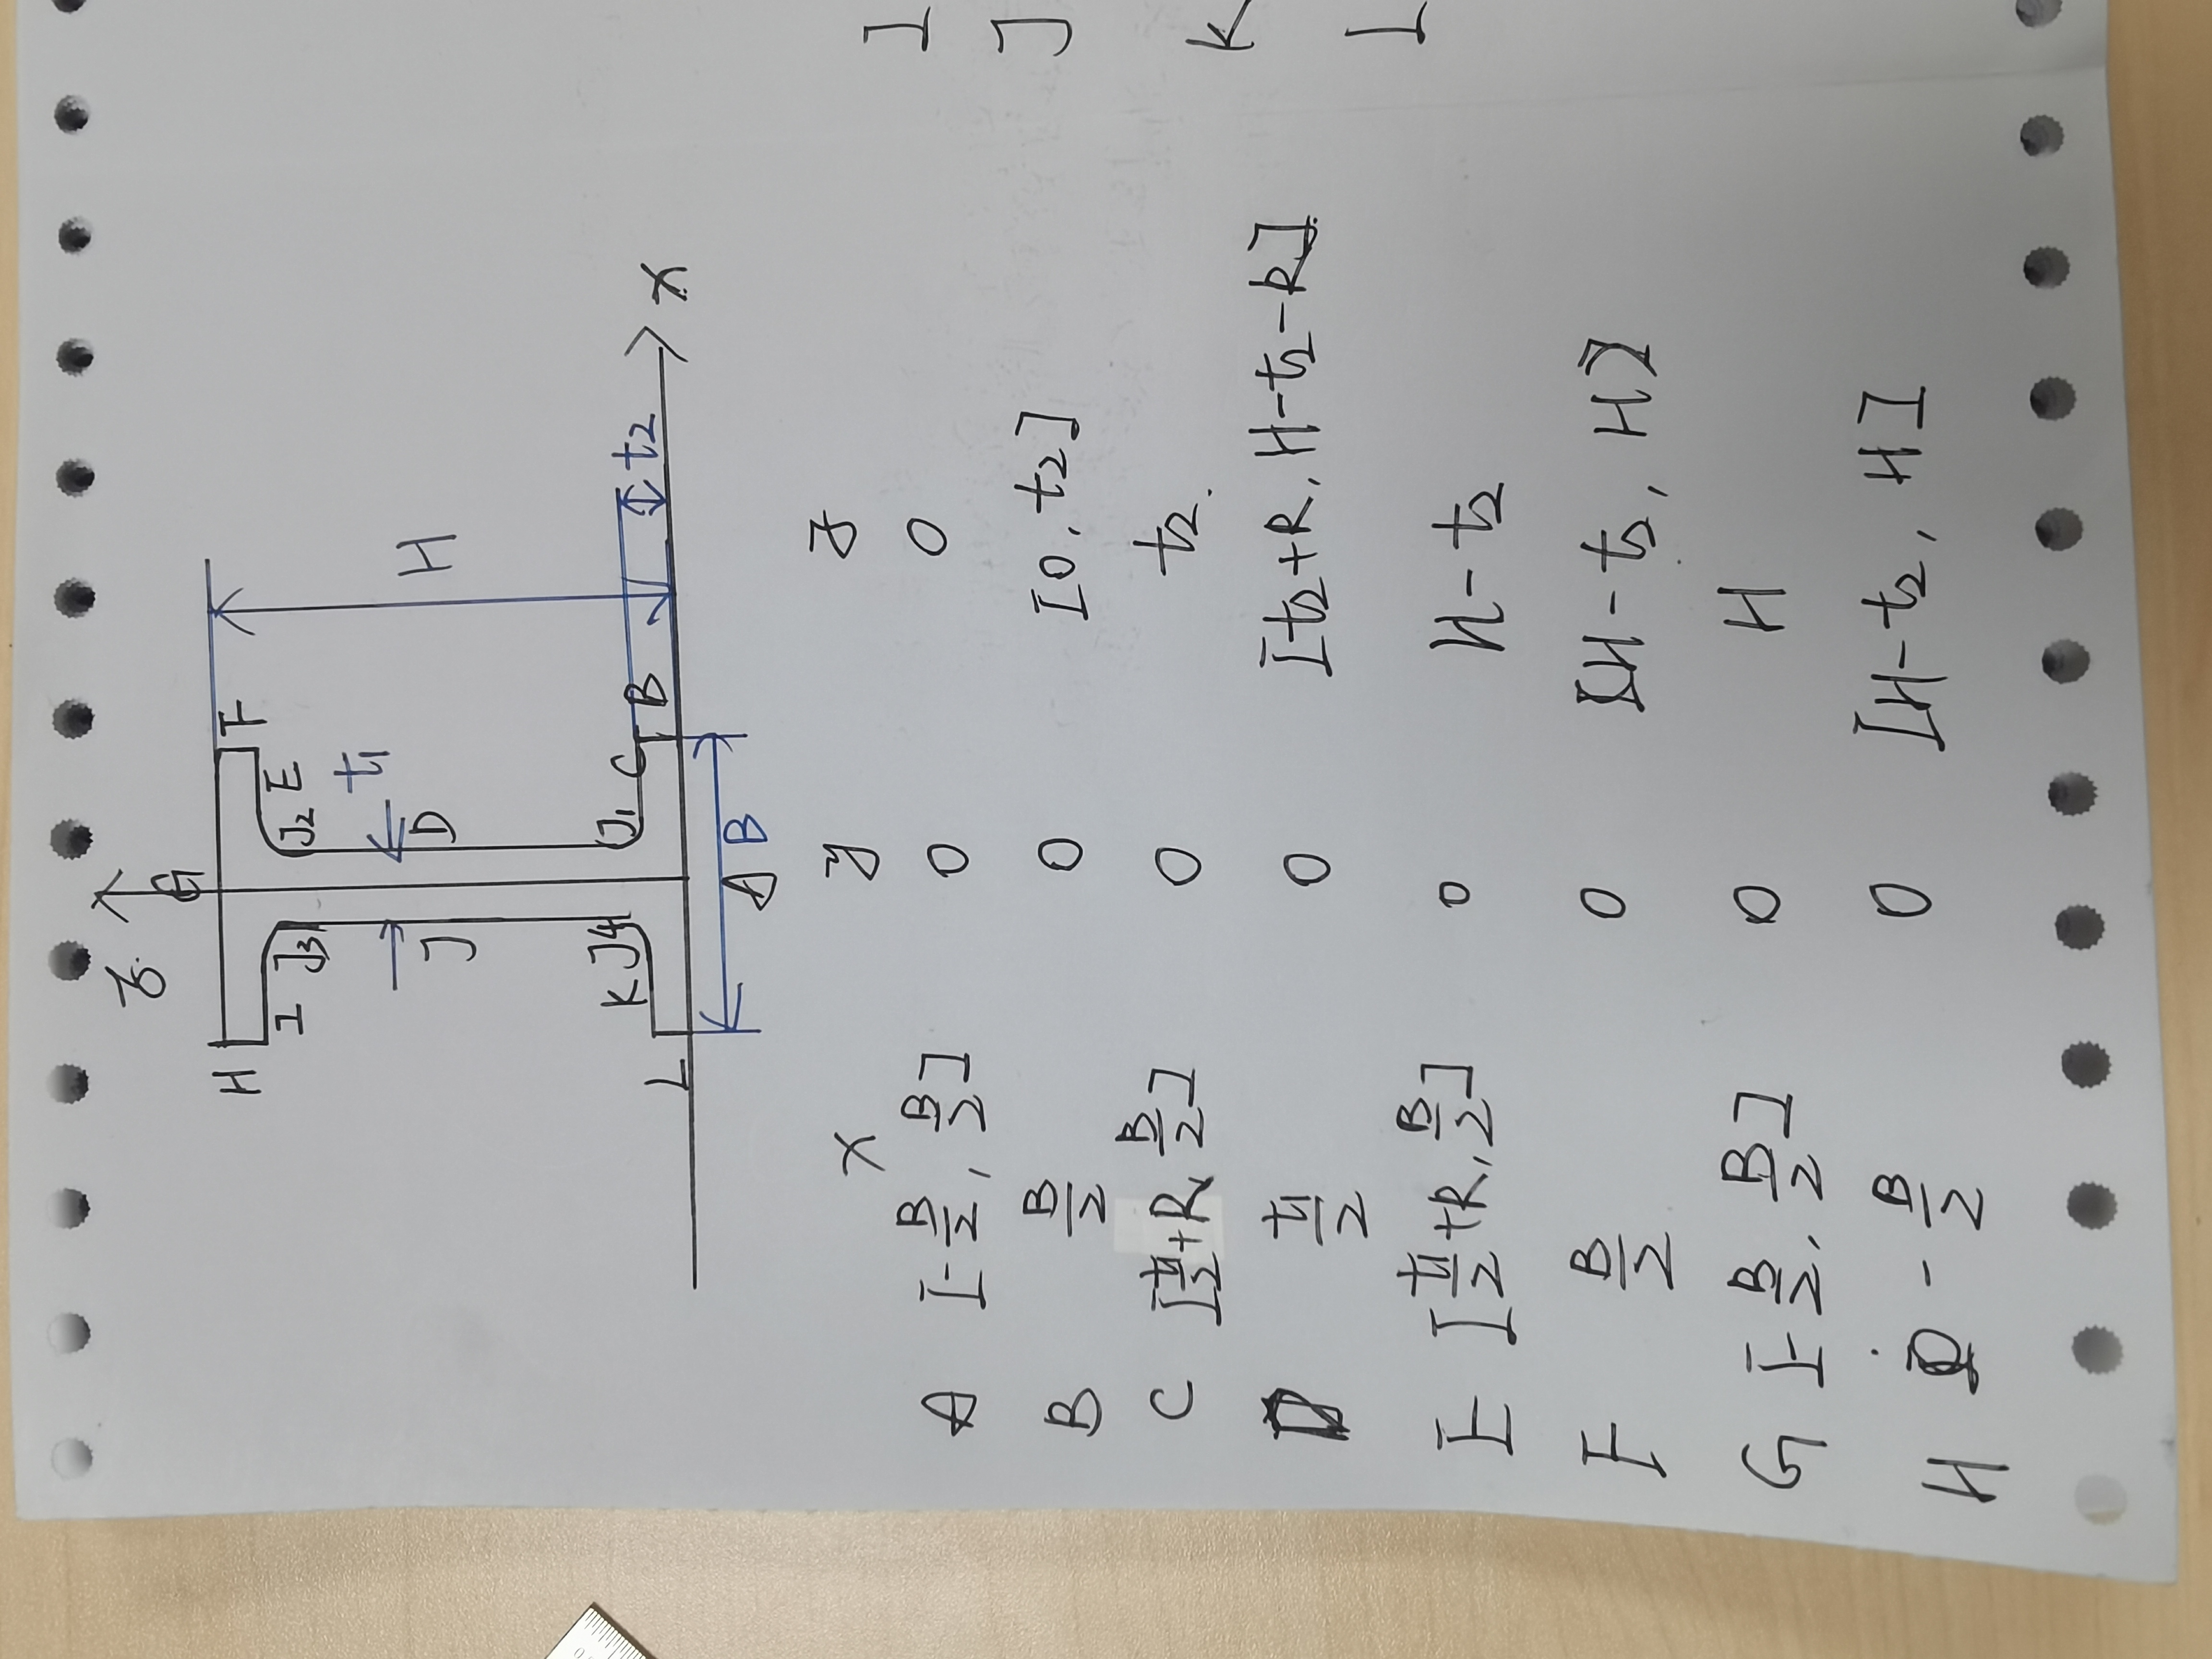 z
G
H F
I J3 J2 E
t1
J D H
K J4 J1 C B t2
L x
A B
x y z
A [-B/2, B/2] 0 0
I
B B/2 0 [0, t2]
J
C [t1/2+R, B/2] 0 t2
K
D t1/2 0 [t2+R, H-t2-R]
L
E [t1/2+R, B/2] 0 H-t2
F B/2 0 [H-t2, H]
G [-B/2, B/2] 0 H
H -B/2 0 [H-t2, H]